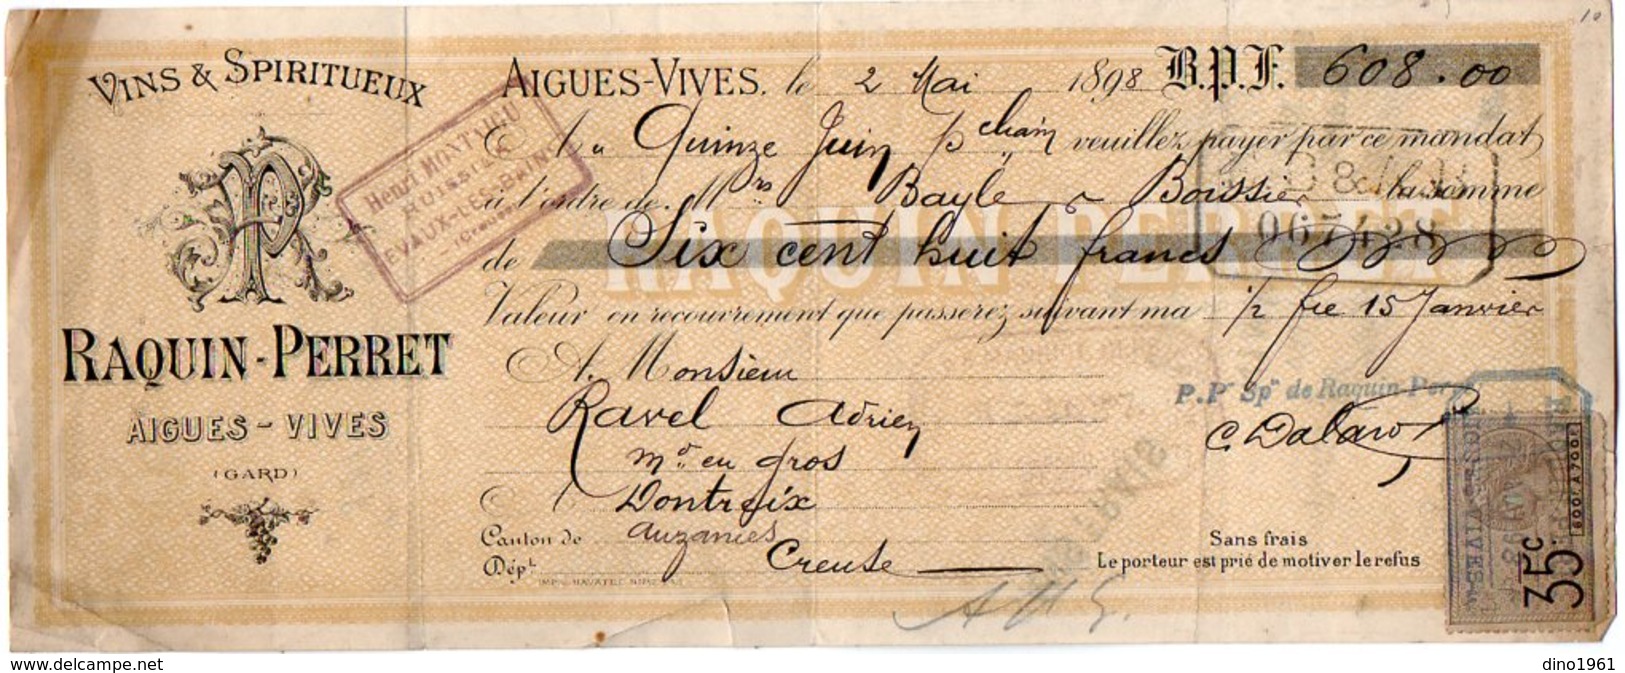 10
VINS & SPIRITUEUX
RAQUIN-PERRET
AIGUES-VIVES
(GARD)
AIGUES-VIVES, le 2 Mai 1898 B.P.F. 608.00
Au Quinze Juin pchain veuillez payer par ce mandat
à l'ordre de Mrs Bayle & Boissier la somme
de Six cent huit francs
Valeur en recouvrement que passerez suivant ma 1/2 fre 15 Janvier
A Monsieur
Ravel Adrien
Md en gros
A Dontreix
Canton de Auzances
Dépt Creuse
Henri MONTVIGU
HUISSIER
EVAUX-LES-BAINS
(Creuse)
067428
RAQUIN PERRET
P.Pr Spn de Raquin-Per
Sans frais
Le porteur est prié de motiver le refus
35c
600f A 700f
www.delcampe.net
dino1961